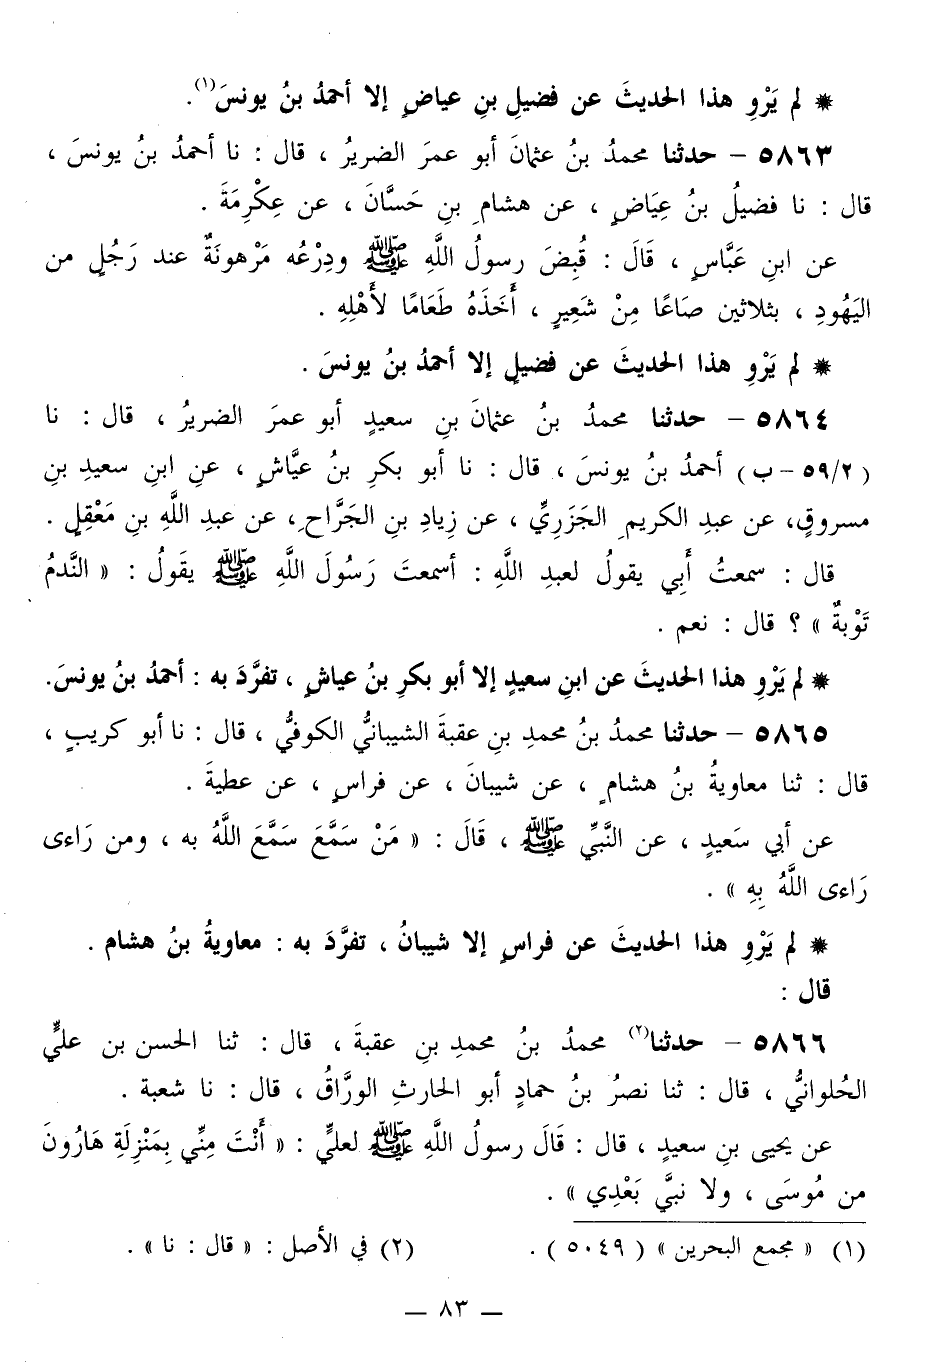 * لم يَرْوِ هذا الحديثَ عن فضيلِ بنِ عياضٍ إلا أحمدُ بنُ يونسَ(١).
٥٨٦٣ – حدثنا محمدُ بنُ عثمانَ أبو عمرَ الضريرُ ، قال : نا أحمدُ بنُ يونسَ ،
قال : نا فضيلُ بنُ عِيَاضٍ ، عن هشامِ بنِ حَسَّانَ ، عن عِكْرِمَةَ .
عن ابنِ عَبَّاسٍ ، قَالَ : قُبِضَ رسولُ اللَّهِ ﷺ ودِرْعُه مَرْهونَةٌ عند رَجُلٍ من
اليَهُودِ ، بثلاثين صَاعًا مِنْ شَعِيرٍ ، أَخَذَهُ طَعَامًا لأَهْلِهِ .
* لم يَرْوِ هذا الحديثَ عن فضيلٍ إلا أحمدُ بنُ يونسَ .
٥٨٦٤ – حدثنا محمدُ بنُ عثمانَ بنِ سعيدٍ أبو عمرَ الضريرُ ، قال : نا
( ٥٩/٢ – ب ) أحمدُ بنُ يونسَ ، قال : نا أبو بكرِ بنُ عيَّاشٍ ، عنِ ابنِ سعيدِ بنِ
مسروقٍ، عن عبدِ الكريمِ الجَزَرِيِّ ، عن زِيادِ بنِ الجَرَّاحِ، عن عبدِ اللَّهِ بنِ مَعْقِلٍ .
قال : سمعتُ أَبِي يقولُ لعبدِ اللَّهِ : أسمعتَ رَسُولَ اللَّهِ ﷺ يقَولُ : « النَّدمُ
تَوْبةٌ » ؟ قال : نعم .
* لم يَرْوِ هذا الحديثَ عن ابنِ سعيدٍ إلا أبو بكرِ بنُ عياشٍ ، تفرَّدَ به : أحمدُ بنُ يونسَ.
٥٨٦٥ – حدثنا محمدُ بنُ محمدِ بنِ عقبةَ الشيبانيُّ الكوفيُّ ، قال : نا أبو كريبٍ ،
قال : ثنا معاويةُ بنُ هشامٍ ، عن شيبانَ ، عن فراسٍ ، عن عطيةَ .
عن أبي سَعيدٍ ، عن النَّبيِّ ﷺ ، قَالَ : « مَنْ سَمَّعَ سَمَّعَ اللَّهُ به ، ومن رَاءى
رَاءى اللَّهُ بِهِ » .
* لم يَرْوِ هذا الحديثَ عن فراسٍ إلا شيبانُ ، تفرَّدَ به : معاويةُ بنُ هشام .
قال :
٥٨٦٦ – حدثنا(٢) محمدُ بنُ محمدِ بنِ عقبةَ ، قال : ثنا الحسن بن عليٍّ
الحُلوانيُّ ، قال : ثنا نصرُ بنُ حمادٍ أبو الحارثِ الورَّاقُ ، قال : نا شعبة .
عن يحيى بنِ سعيدٍ ، قال : قَالَ رسولُ اللَّهِ ﷺ لعليٍّ : « أَنْتَ مِنِّي بِمَنْزِلَةِ هَارُونَ
من مُوسَى ، ولا نبيَّ بَعْدِي » .
(١) « مجمع البحرين » ( ٥٠٤٩ ) . (٢) في الأصل : « قال : نا » .
— ٨٣ —